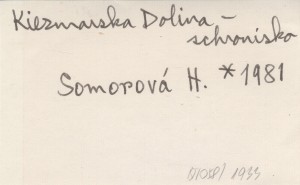 Kiezmarska Dolina –
schronisko
Somorová H. *1981
1933